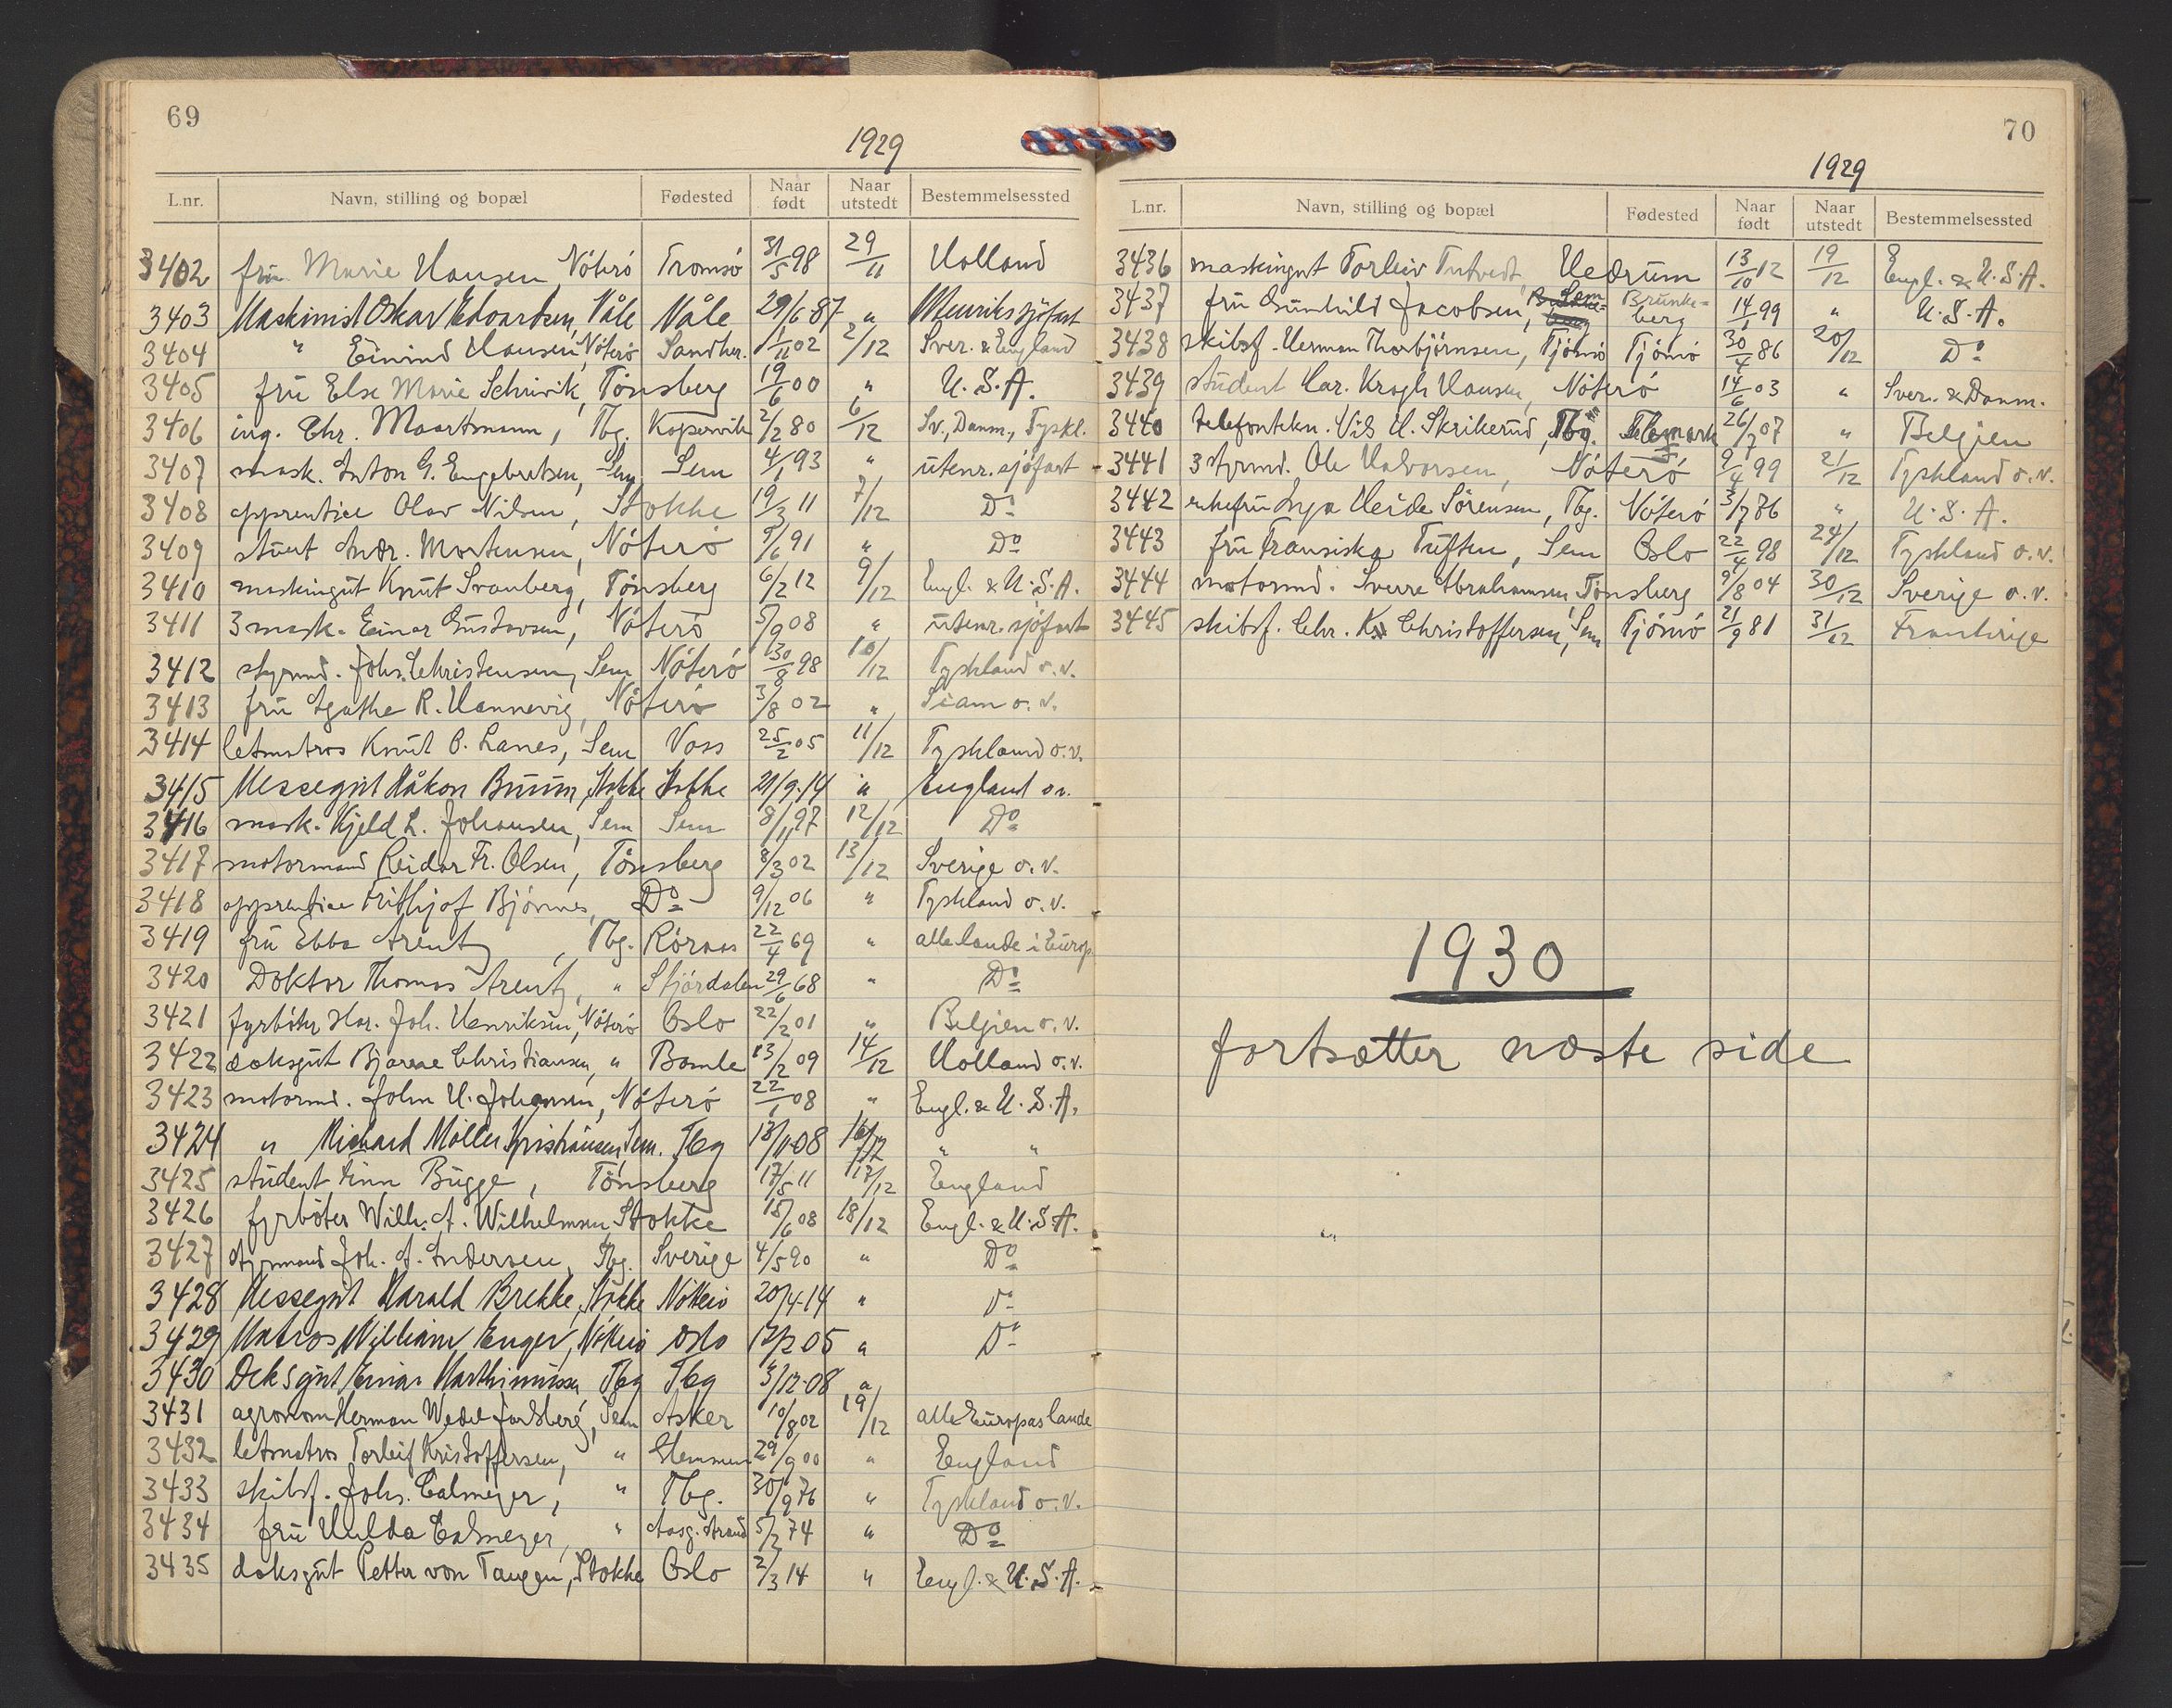 69
1929
L.nr. Navn, stilling og bopæl Fødested Naar født Naar utstedt Bestemmelsessted
3402 frü Marie Hansen, Nöterö Tromsö 31/5 98 29/11 Holland
3403 Maskinist Oskar Edvardsen, Våle Våle 29/6 87 " Utenriks sjöfart
3404 " Hansen, Nöterö Sandher. 1/11 02 2/12 Sver. & England
3405 frü Else Marie Schuvik, Tönsberg 19/6 00 " U.S.A.
3406 ing. Chr. Maartmann, Tbg. Kopervik 2/2 80 6/12 Sv., Danm., Tyskl.
3407 mask. Anton G. Engebretsen, Sem Sem 4/1 93 " utenr. sjöfart
3408 apprentice Olav Nilsen, Stokke 19/3 11 7/12 Do
3409 stuert Andr. Mortensen, Nöterö 9/6 91 " Do
3410 maskingut Knut Svanberg, Tönsberg 6/2 12 9/12 Engl. & U.S.A.
3411 3 mask. Einar Gustavsen, Nöterö 5/9 08 " utenr. sjöfart
3412 styrmd. Johs. Christensen, Sem Nöterö 30/8 98 10/12 Tyskland o.v.
3413 frü Agathe R. Hannevig, Nöterö 3/8 02 " Siam o.v.
3414 letmatros Knut O. Lanes, Sem Voss 25/2 05 11/12 Tyskland o.v.
3415 Messegut Håkon Bruun, Stokke Stokke 21/9-14 " England o.v.
3416 mask. Kjeld L. Johansen, Sem Sem 8/11 97 12/12 Do
3417 motormand Reidar Fr. Olsen, Tönsberg 8/3 02 13/12 Sverige o.v.
3418 apprentice Frithjof Bjönnes, Do 9/12 06 " Tyskland o.v.
3419 frü Ebba Arentz, Tbg. Röraas 22/4 69 " alle lande i Europ.
3420 Doktor Thomas Arentz, " Stjördalen 29/6 68 " Do
3421 fyrböter Har. Joh. Henriksen, Nöterö Oslo 22/2 01 " Belgien o.v.
3422 dæksgut Bjarne Christiansen, " Bamle 13/2 09 14/12 Holland o.v.
3423 motormd. John H. Johansen, Nöterö 22/1 08 " Engl. & U.S.A.
3424 " Richard Möller Kristiansen, Sem. Tbg 13/11-08 16/12 " "
3425 student Finn Bugge, Tönsberg 17/5 11 17/12 England
3426 fyrböter Wilh. A. Wilhelmsen, Stokke 15/6 08 18/12 Engl. & U.S.A.
3427 styrmand Joh. A. Andersen, Tbg. Sverige 4/5 90 " Do
3428 Messegut Harald Brekke, Stokke Nöterö 20/4-14 " Do
3429 Matros William Enger, Nöterö Oslo 17/2 05 " Do
3430 Deksgut Einar Marthiniussen Tbg Tbg 3/12-08 "
3431 agronom Herman Wedel Jarlsberg, Sem Asker 10/8 02 19/12 alle Europas lande
3432 letmatros Torleif Kristoffersen, " Glemmen 29/9 00 " England
3433 skibsf. Johs. Calmeyer, " Tbg. 30/9 76 " Tyskland o.v.
3434 frü Hulda Calmeyer, " Aasg.strand 5/2 74 " Do
3435 dæksgut Petter von Tangen, Stokke Oslo 2/3 14 " Engl. & U.S.A.
70
1929
L.nr. Navn, stilling og bopæl Fødested Naar født Naar utstedt Bestemmelsessted
3436 maskingut Torleiv Tutvedt, Hedrum 13/10 12 19/12 Engl. & U.S.A.
3437 frü Gunhild Jacobsen, Sem Brunkeberg 14/1 99 " U.S.A.
3438 skibsf. Herman Thorbjörnsen, Tjömö Tjömö 30/4 86 20/12 Do
3439 student Car. Krogh Hansen, Nöterö 14/6 03 " Sver. & Danm.
3440 telefontekn. Nils H. Skrikerud, Tbg. Telemark 26/7 07 " Belgien
3441 3 styrmd. Ole Halvorsen, Nöterö 9/4 99 21/12 Tyskland o.v.
3442 enkefrü Inga Heide Sörensen, Tbg. Nöterö 3/7 86 " U.S.A.
3443 frü Fransiska Tuften, Sem Oslo 22/4 98 24/12 Tyskland o.v.
3444 motormd. Sverre Abrahamsen, Tönsberg 9/8 04 30/12 Sverige o.v.
3445 skibsf. Chr. Christoffersen, Sem Tjömö 21/9 81 31/12 Frankrige
1930
fortsætter næste side